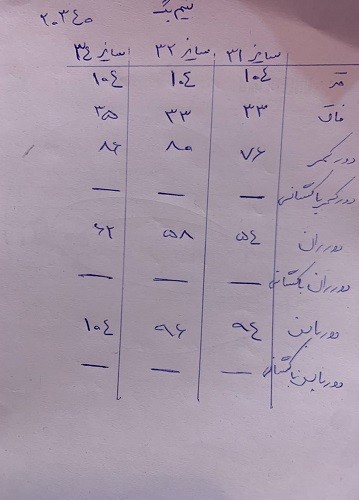 سیم بگ ۲۰۳۴۰
سایز ۳۱ سایز ۳۲ سایز ۳۴
قد ۱۰۴ ۱۰۴ ۱۰۴
فاق ۳۳ ۳۳ ۳۵
دور کمر ۷۶ ۸۰ ۸۶
دور کمر با کشسانی — — —
دور ران ۵۴ ۵۸ ۶۲
دور ران با کشسانی — — —
دور باسن ۹۴ ۹۶ ۱۰۴
دور باسن با کشسانی — — —